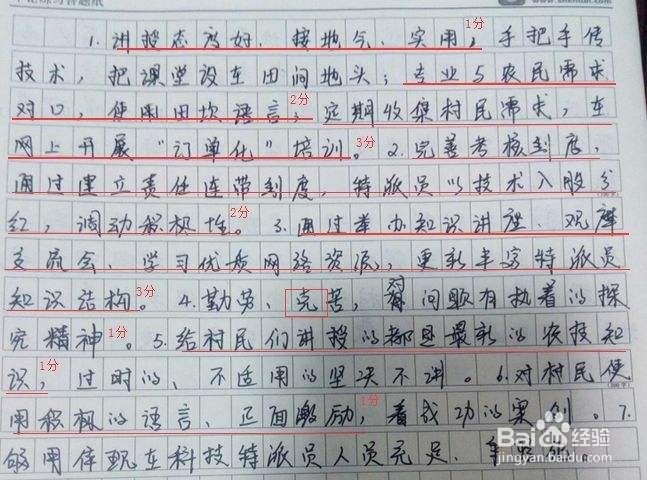 1.讲授态度好、接地气、实用，1分 手把手传
技术，把课堂设在田间地头；专业与农民需求
对口，使用田坎语言；2分 定期收集村民需求，在
网上开展“订单化”培训。3分 2.完善考核制度，
通过建立责任连带制度，特派员以技术入股分
红，调动积极性。2分 3.通过举办知识讲座、观摩
交流会、学习优质网络资源，更新丰富特派员
知识结构。3分 4.勤劳、克苦，问题有执着的探
究精神1分。5.给村民们讲授的都是最新的农技知
识，1分 过时的、不适用的坚决不讲。6.对村民使
用积极的语言、正面激励，1分 着成功的案例。7.
够用体现在科技特派员人员充足、
Baidu 百度经验
jingyan.baidu.com